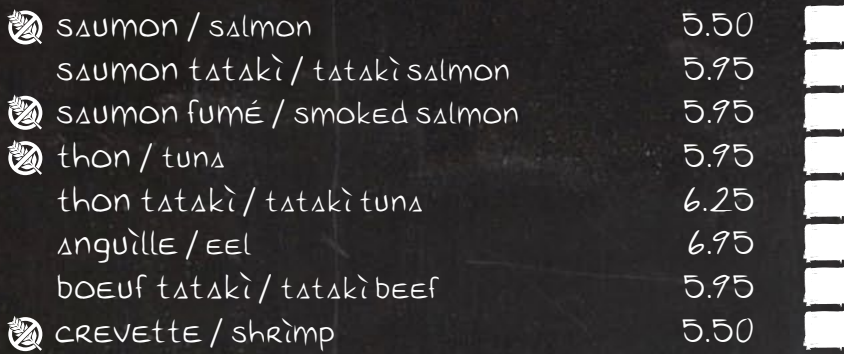 saumon / salmon 5.50
saumon tataki / tataki salmon 5.95
saumon fumé / smoked salmon 5.95
thon / tuna 5.95
thon tataki / tataki tuna 6.25
anguille / eel 6.95
boeuf tataki / tataki beef 5.95
crevette / shrimp 5.50